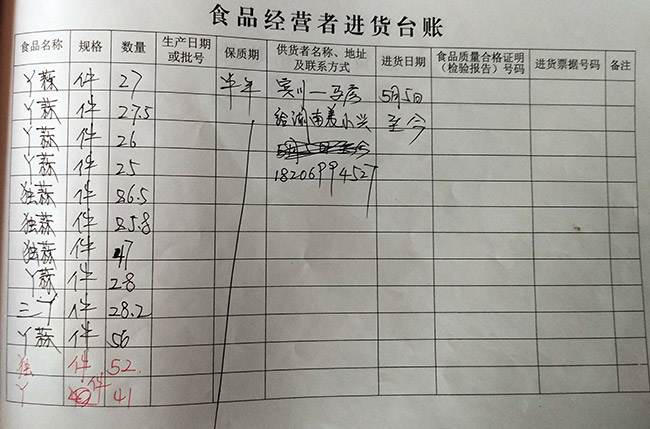 食品经营者进货台账
食品名称 规格 数量 生产日期或批号 保质期 供货者名称、地址及联系方式 进货日期 食品质量合格证明(检验报告)号码 进货票据号码 备注
丫蒜 件 27 半年 宾川一 5月5日
丫蒜 件 27.5 小兴 至今
丫蒜 件 26
丫蒜 件 25 18206994527
独蒜 件 86.5
独蒜 件 85.8
独蒜 件 47
丫蒜 件 28
三丫 件 28.2
丫蒜 件 56
独 件 52
丫 件 41